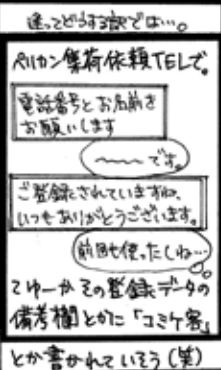 逢ってどうする訳では…。
ペリカン集荷依頼TELで。
電話番号とお名前を
お願いします
〜〜〜です。
ご登録されていますね、
いつもありがとうございます。
前回も使ったしね…
てゆーかその登録データの
備考欄とかに「コミケ客」
とか書かれていそう(笑)